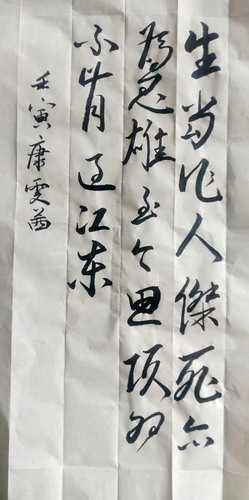 生当作人傑死亦
为鬼雄至今思项羽
不肯过江东
壬寅康雯茜